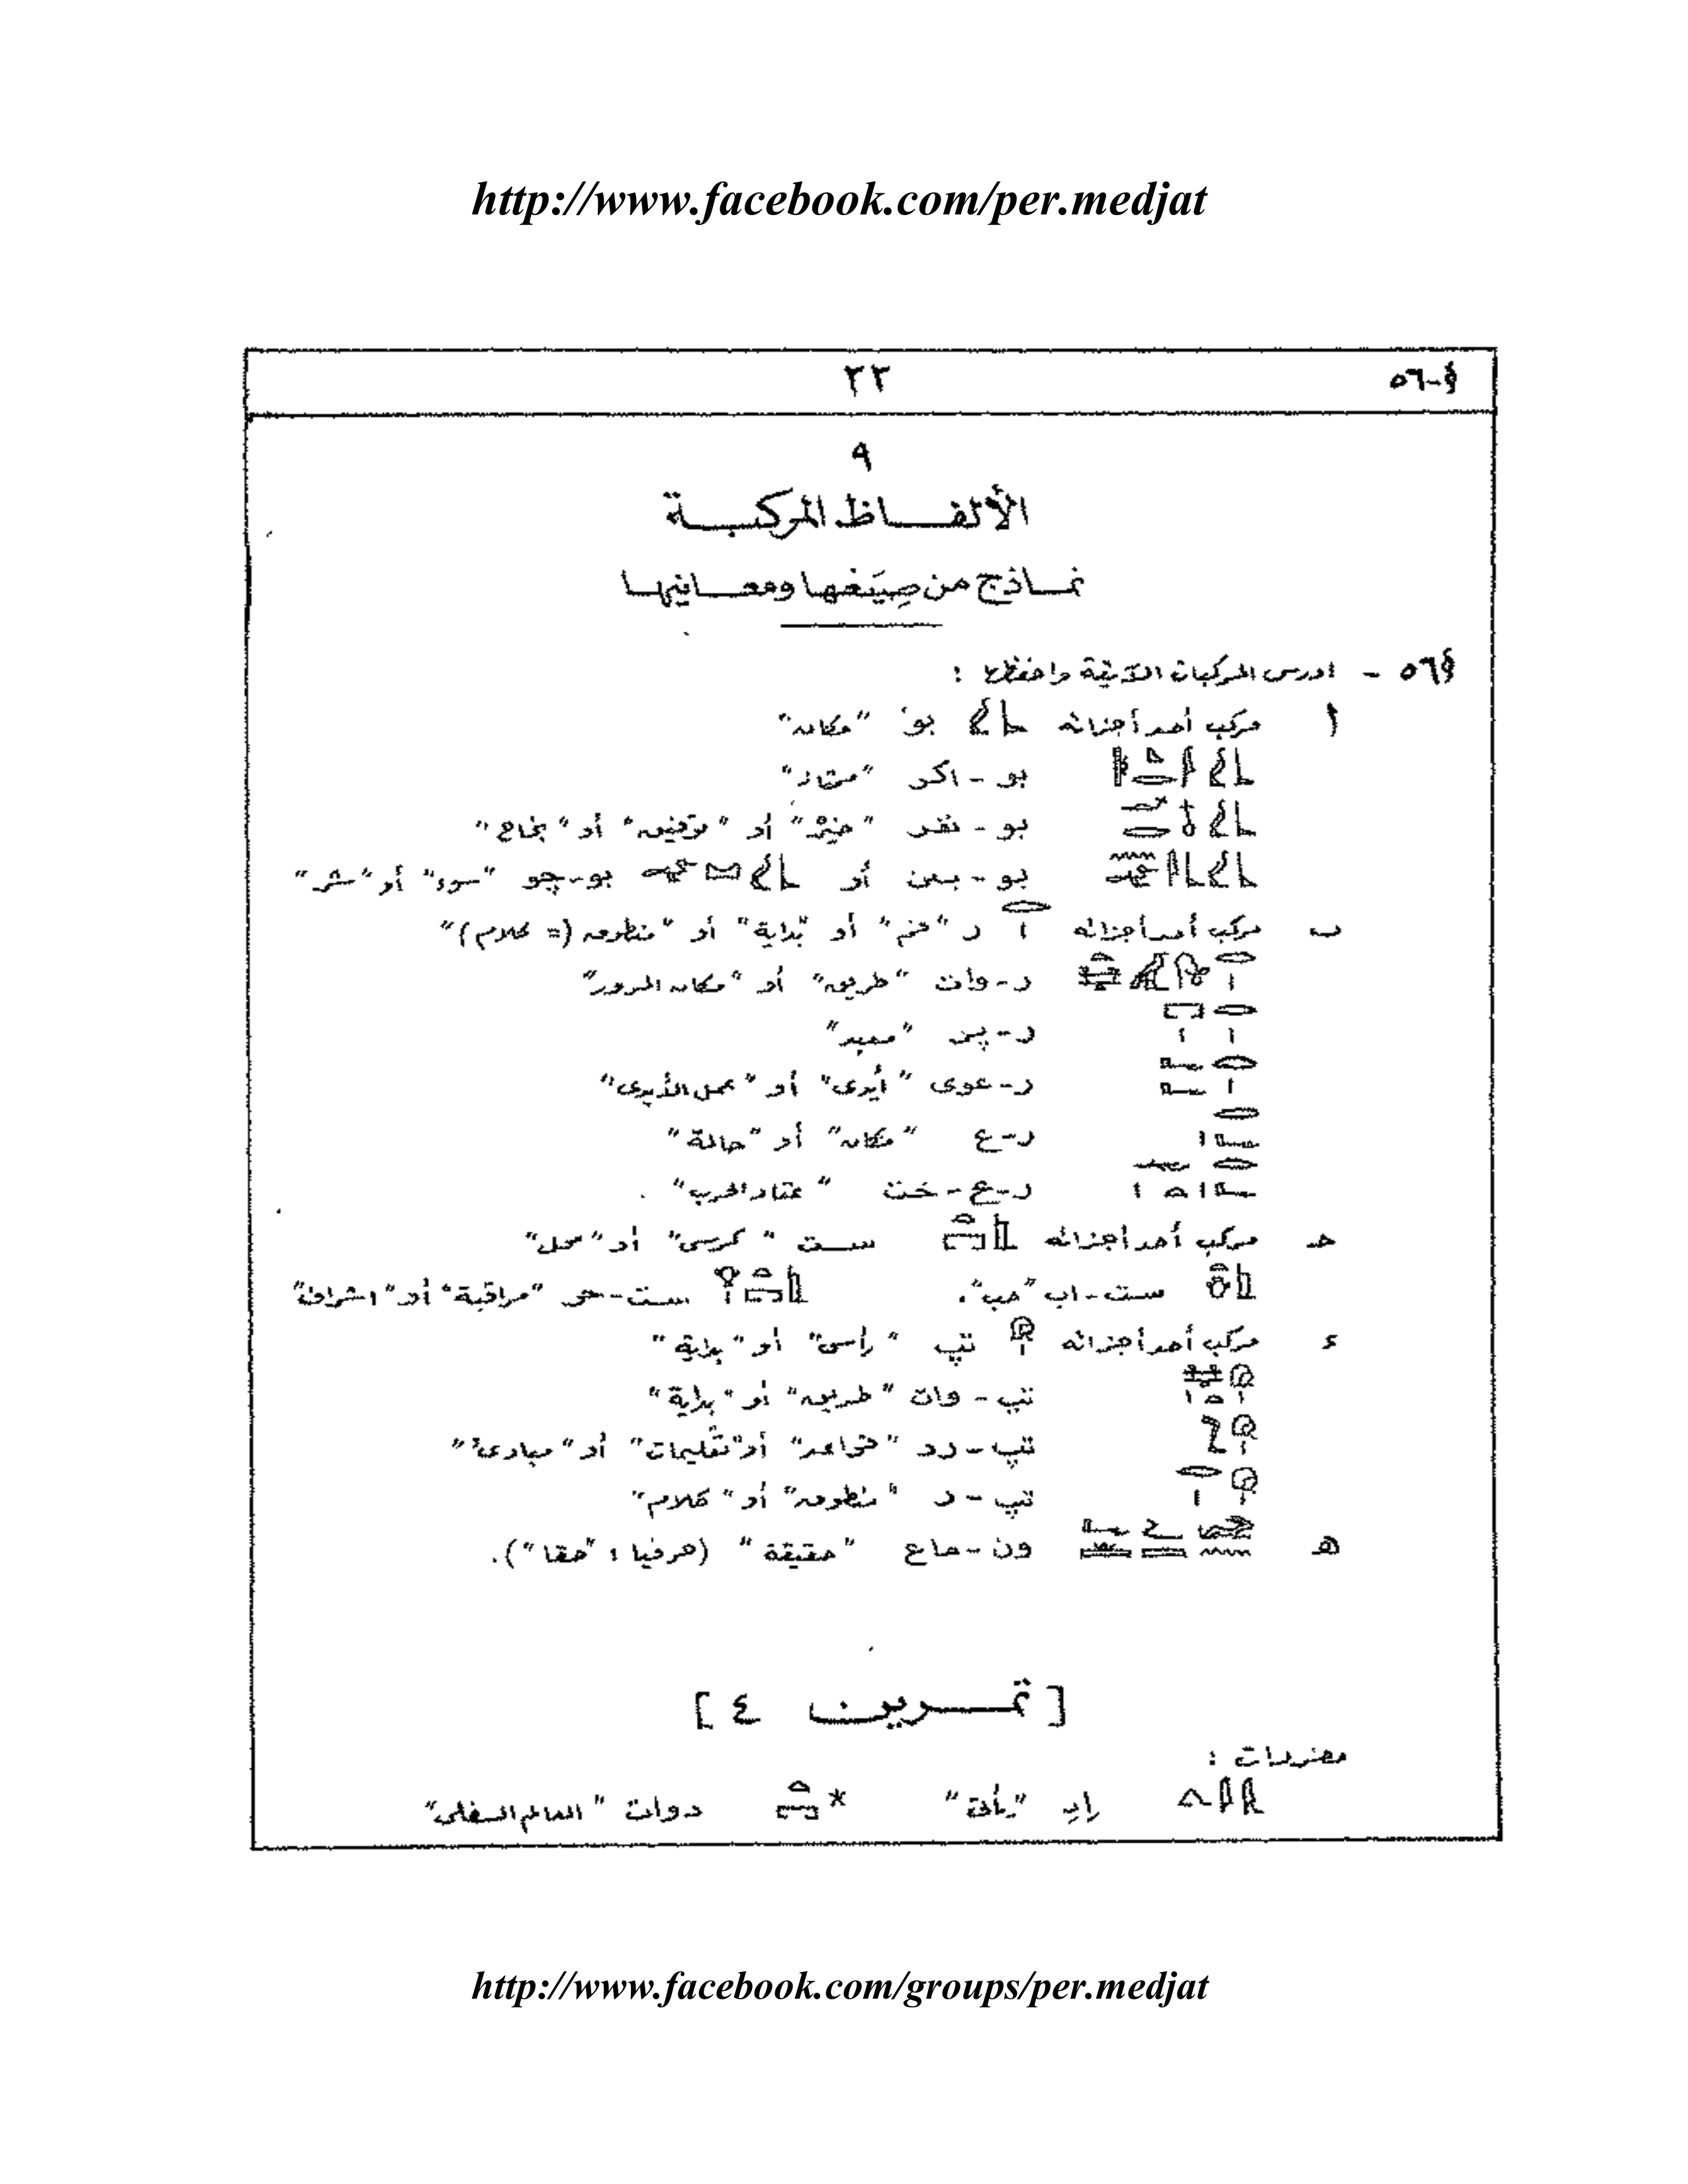 http://www.facebook.com/per.medjat
§-٥٦ ٣٣
٩
الألفاظ المركبة
نماذج من صِيَغها ومعانيها
§٥٦ - ادرس المركبات الآتية واحفظها :
أ مركب أحد أجزائه بو "مكان"
بو - اكر "ممتاز"
بو - نفر "خير" أو "توفيق" أو "نجاح"
بو - بين أو بو-چو "سوء" أو "شر"
ب مركب أحد أجزائه ر "فم" أو "بداية" أو "منطوق (= كلام)"
ر-وات "طريق" أو "مكان المرور"
ر-پر "معبد"
ر-عوى "أيدى" أو "عمل الأيدى"
ر-ع "مكان" أو "حالة"
ر-ع-خت "عتاد الحرب".
حـ مركب أحد أجزائه ست "كرسى" أو "محل"
ست-اب "حب". ست-حر "مراقبة" أو "اشراف"
ء مركب أحد أجزائه تپ "رأس" أو "بداية"
تپ-وات "طريق" أو "بداية"
تپ-رد "قواعد" أو "تعليمات" أو "مبادئ"
تپ-ر "منطوق" أو "كلام"
هـ ون-ماع "حقيقة" (حرفيا : "حقا").
[ تمرين ٤ ]
مفردات :
"يأتى" دوات "العالم السفلى"
http://www.facebook.com/groups/per.medjat